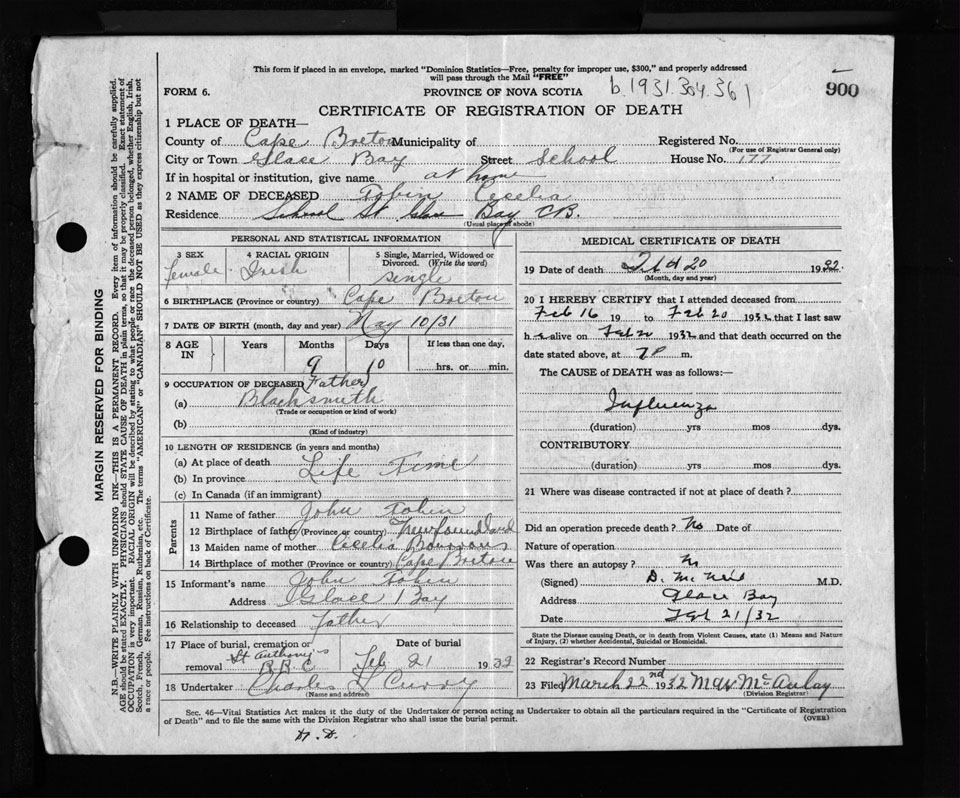 This form if placed in an envelope, marked "Dominion Statistics—Free, penalty for improper use, $300," and properly addressed
will pass through the Mail "FREE"
FORM 6. PROVINCE OF NOVA SCOTIA b.1931.304.361 900
CERTIFICATE OF REGISTRATION OF DEATH
1 PLACE OF DEATH—
County of Cape Breton Municipality of Registered No.
(For use of Registrar General only)
City or Town Glace Bay Street School House No. 177
If in hospital or institution, give name at home
2 NAME OF DECEASED Tobin Cecelia
Residence School St Glace Bay C B.
(Usual place of abode)
PERSONAL AND STATISTICAL INFORMATION
3 SEX 4 RACIAL ORIGIN 5 Single, Married, Widowed or
Divorced. (Write the word)
female Irish single
6 BIRTHPLACE (Province or country) Cape Breton
7 DATE OF BIRTH (month, day and year) May 10/31
8 AGE IN Years Months Days If less than one day,
9 10 hrs. or min.
9 OCCUPATION OF DECEASED Father
(a) Blacksmith
(Trade or occupation or kind of work)
(b)
(Kind of industry)
10 LENGTH OF RESIDENCE (in years and months)
(a) At place of death Life Time
(b) In province
(c) In Canada (if an immigrant)
Parents
11 Name of father John Tobin
12 Birthplace of father (Province or country) Newfoundland
13 Maiden name of mother Cecelia
14 Birthplace of mother (Province or country) Cape Breton
15 Informant's name John Tobin
Address Glace Bay
16 Relationship to deceased father
17 Place of burial, cremation or Date of burial
removal St Anthony's Feb 21 1932
18 Undertaker Charles Curry
(Name and address)
MEDICAL CERTIFICATE OF DEATH
19 Date of death Feb 20 1932
(Month, day and year)
20 I HEREBY CERTIFY that I attended deceased from
Feb 16 19 to Feb 20 1932 that I last saw
h alive on Feb 20 1932 and that death occurred on the
date stated above, at 7 P m.
The CAUSE of DEATH was as follows:—
Influenza
(duration) yrs mos dys.
CONTRIBUTORY
(duration) yrs mos dys.
21 Where was disease contracted if not at place of death?
Did an operation precede death? No Date of
Nature of operation
Was there an autopsy? No
(Signed) D. McNeil M.D.
Address Glace Bay
Date Feb 21/32
State the Disease causing Death, or in death from Violent Causes, state (1) Means and Nature
of Injury, (2) whether Accidental, Suicidal or Homicidal.
22 Registrar's Record Number
23 Filed March 22nd 1932 McAulay
(Division Registrar)
Sec. 46—Vital Statistics Act makes it the duty of the Undertaker or person acting as Undertaker to obtain all the particulars required in the "Certificate of Registration
of Death" and to file the same with the Division Registrar who shall issue the burial permit. (OVER)
MARGIN RESERVED FOR BINDING
N.B.—WRITE PLAINLY WITH UNFADING INK—THIS IS A PERMANENT RECORD. Every item of information should be carefully supplied.
AGE should be stated EXACTLY. PHYSICIANS should STATE CAUSE OF DEATH in plain terms, so that it may be properly classified. Exact statement of
OCCUPATION is very important. RACIAL ORIGIN will be described by stating to what people or race the deceased person belonged, whether English, Irish,
Scotch, French, German, Russian, Ruthenian, etc. The terms "AMERICAN" or "CANADIAN" SHOULD NOT BE USED as they express citizenship but not
a race or people. See instructions on back of Certificate.